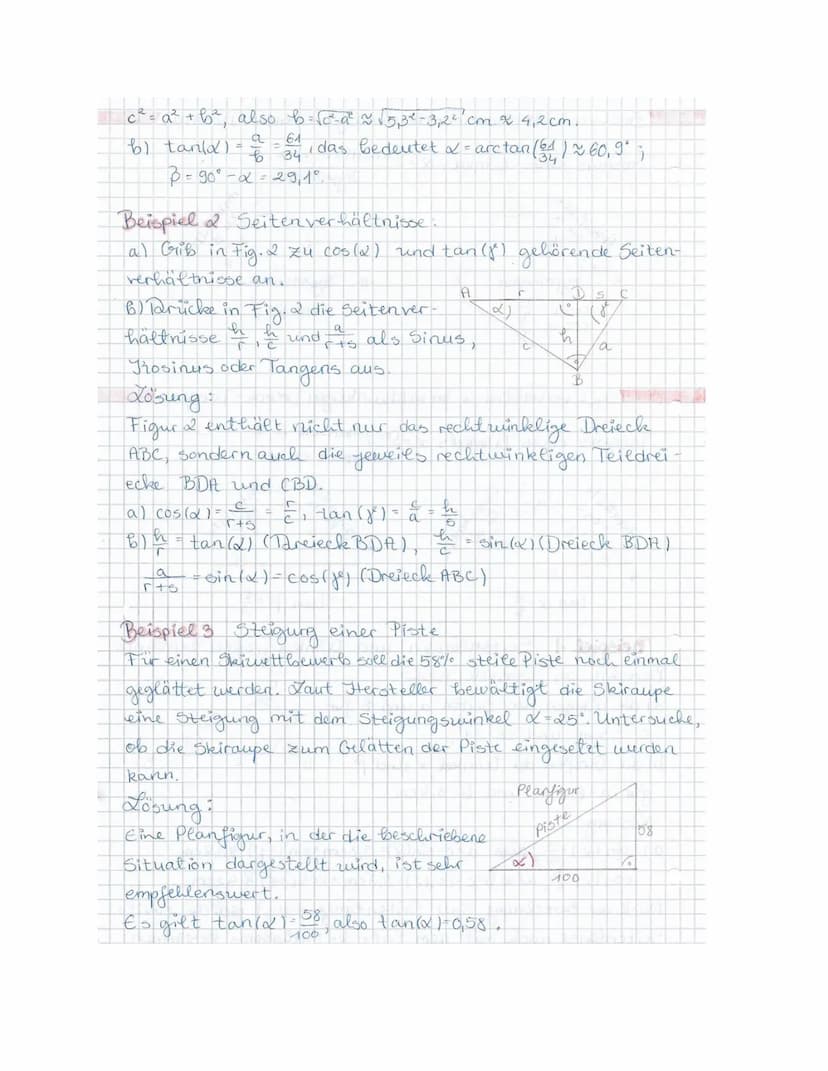 c² = a² + b², also b = √c²-a² ≈ √5,3²-3,2² cm ≈ 4,2cm.
b) tan(α) = a/b = 61/34, das bedeutet α = arctan(61/34) ≈ 60,9°;
β = 90° - α = 29,1°
Beispiel 2 Seitenverhältnisse.
a) Gib in Fig. 2 zu cos(α) und tan(γ) gehörende Seiten-
verhältnisse an.
b) Drücke in Fig. 2 die Seitenver-
hältnisse h/r, h/c und a/r+s als Sinus,
Kosinus oder Tangens aus.
A r D s C
α) γ
c h a
B
Lösung:
Figur 2 enthält nicht nur das rechtwinkelige Dreieck
ABC, sondern auch die jeweils rechtwinkligen Teildrei-
ecke BDA und CBD.
a) cos(α) = c/r+s = r/c, tan(γ) = c/a = h/s
b) h/r = tan(α) (Dreieck BDA), h/c = sin(α) (Dreieck BDA)
a/r+s = sin(α) = cos(γ) (Dreieck ABC)
Beispiel 3 Steigung einer Piste
Für einen Skiwettbewerb soll die 58% steile Piste noch einmal
geglättet werden. Laut Hersteller bewältigt die Skiraupe
eine Steigung mit dem Steigungswinkel α = 25°. Untersuche,
ob die Skiraupe zum Gelätten der Piste eingesetzt werden
kann.
Planfigur
Piste
58
α)
100
Lösung:
Eine Planfigur, in der die beschriebene
Situation dargestellt wird, ist sehr
empfehlenswert.
Es gilt tan(α) = 58/100, also tan(α) = 0,58.